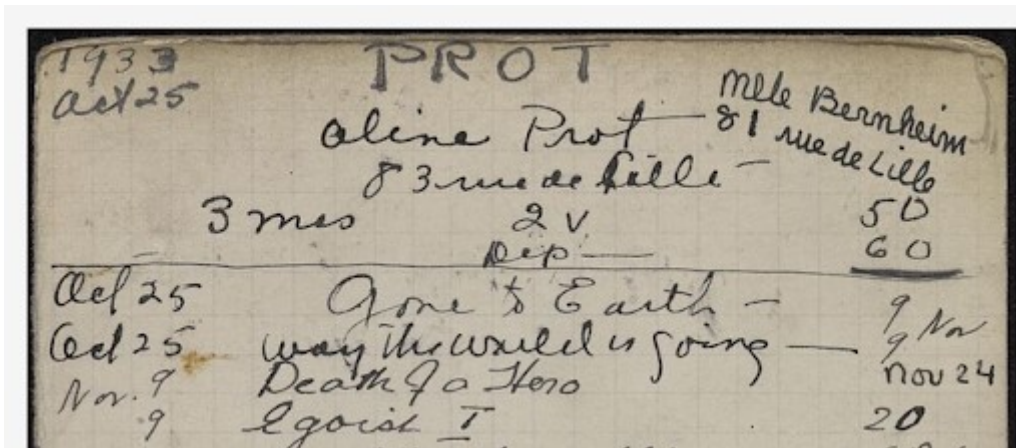 1933 PROT
Oct 25
Mlle Bernheim
81 rue de Lille
Aline Prot
83 rue de Lille
3 mos 2 v 50
Dep 60
Oct 25 Gone to Earth 9 Nov
Oct 25 way the world is going 9
Nov. 9 Death of a Hero Nov 24
9 Egoist I 20